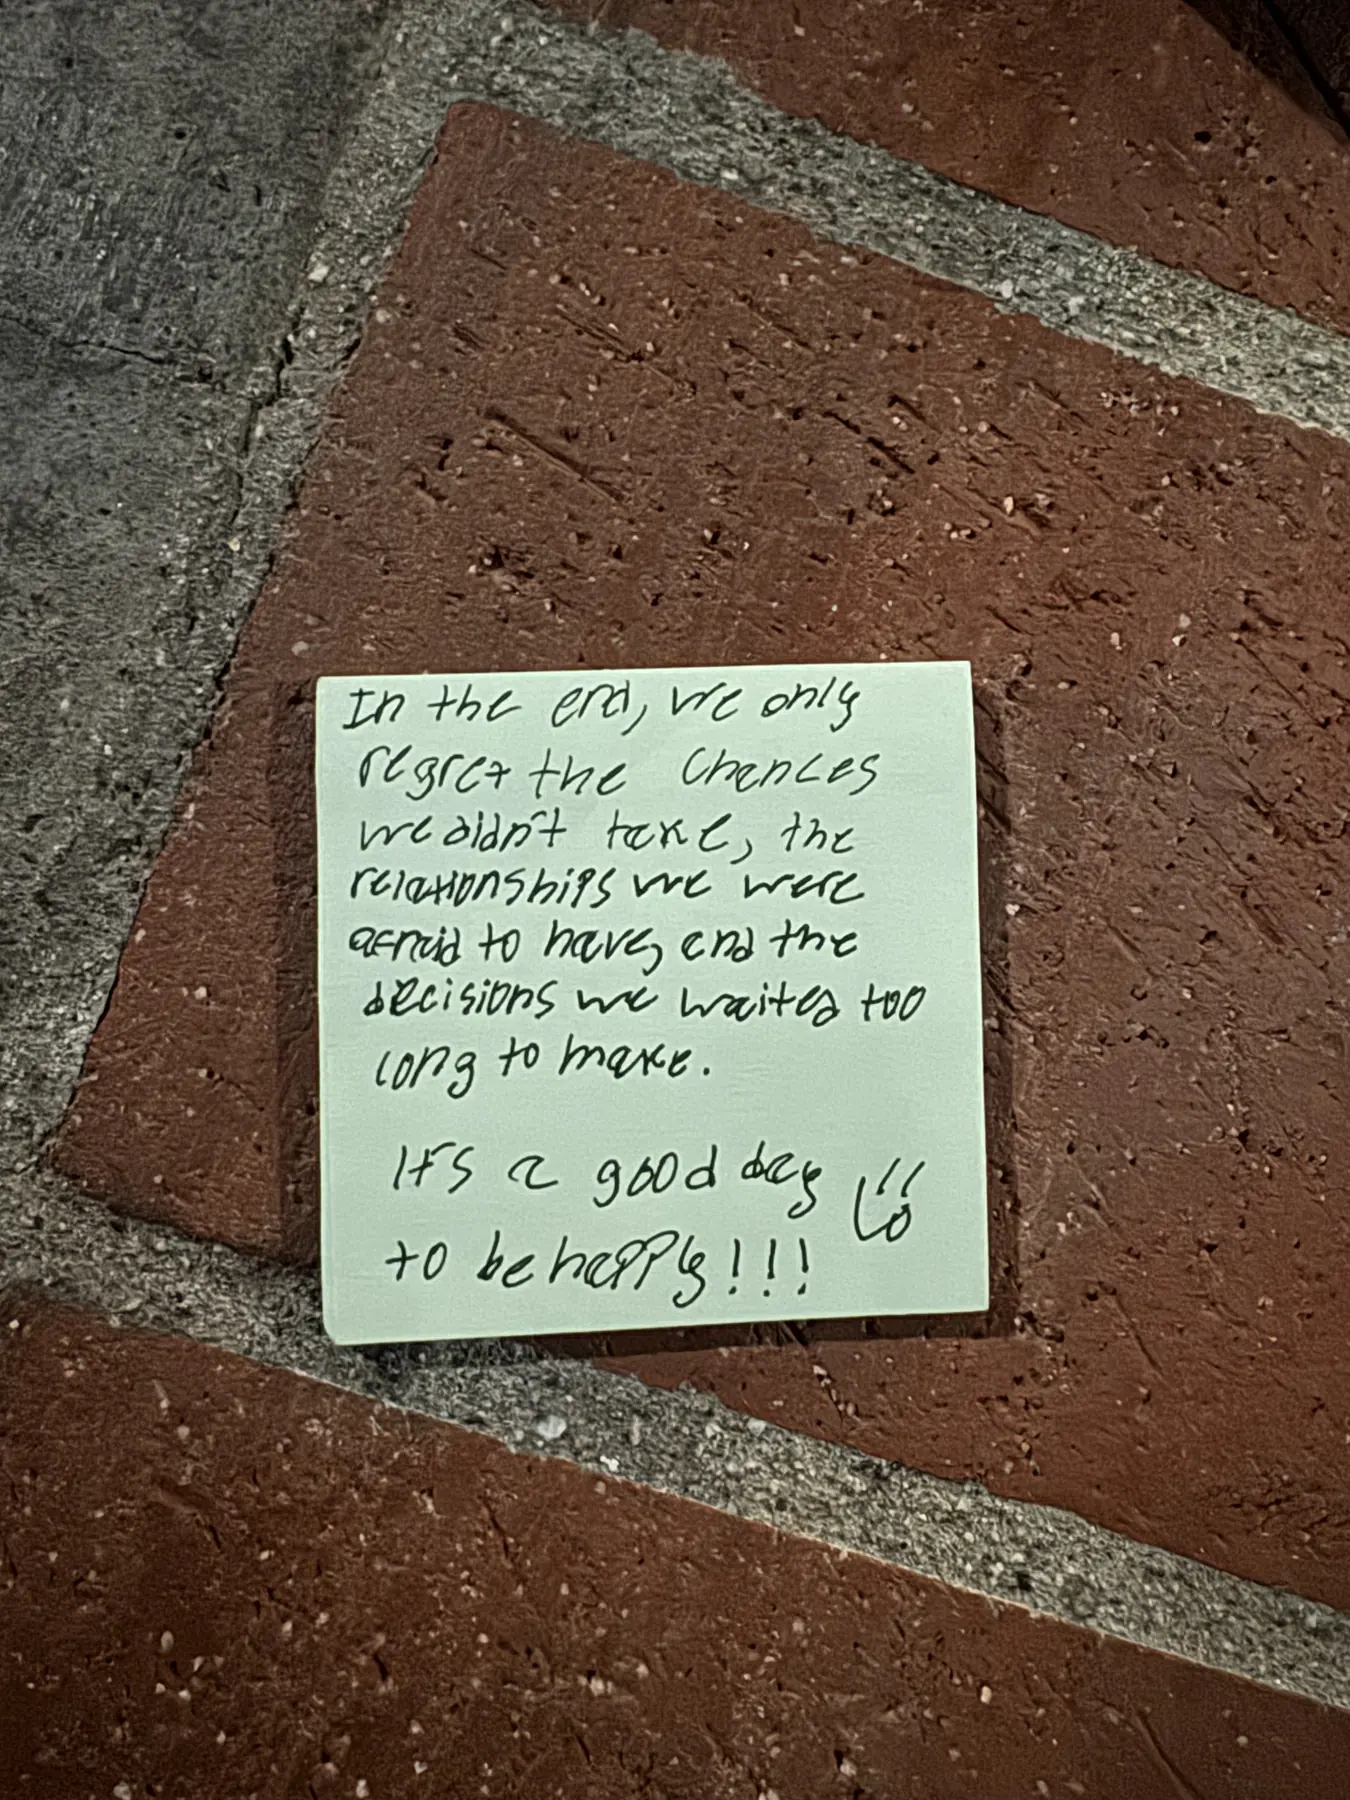 In the end, we only
regret the chances
we didn't take, the
relationships we were
afraid to have, and the
decisions we waited too
long to make.
It's a good day
to be happy!!!